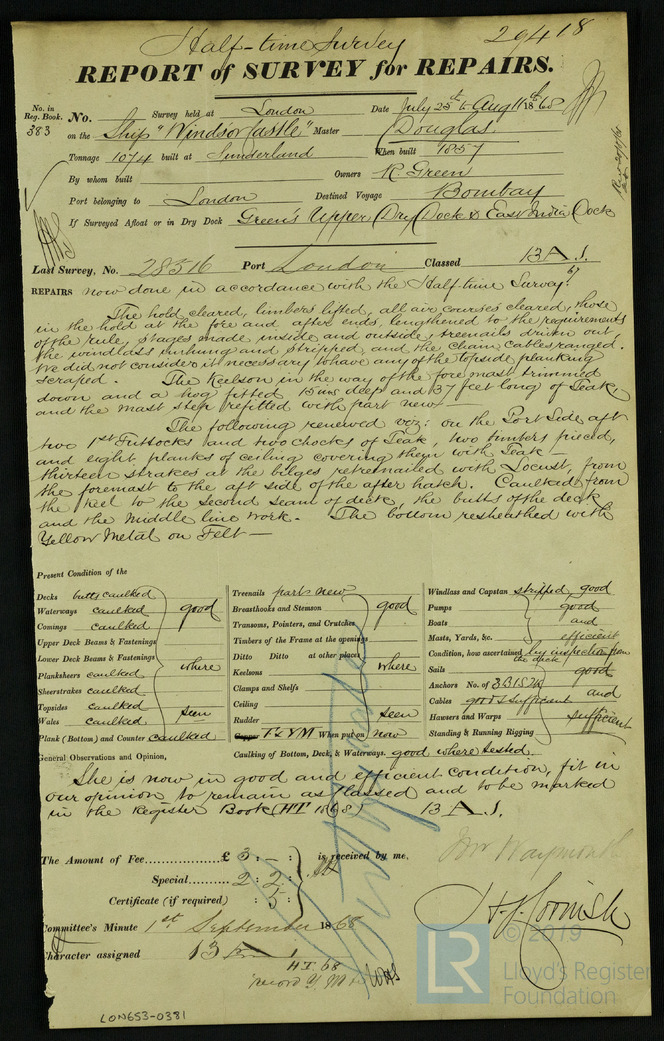 Half-time Survey 29418
REPORT of SURVEY for REPAIRS.
No. in Reg. Book. 383
No. Survey held at London Date July 25th to Aug 11th 1868
on the Ship "Windsor Castle" Master Douglas
Tonnage 1074 built at Sunderland When built 1857
By whom built Owners R Green
Port belonging to London Destined Voyage Bombay
If Surveyed Afloat or in Dry Dock Green's Upper Dry Dock & East India Dock
Last Survey, No. 28516 Port London Classed 13 A 1.
67
REPAIRS now done in accordance with the Half-time Survey.
The hold cleared, limbers lifted, all air courses cleared, those
in the hold at the fore and after ends, lengthened to the requirements
of the rule, stages made inside and outside, treenails driven out
the windlass unhung and stripped, and the chain cables ranged.
We did not consider it necessary to have any of the topside planking
scraped. The Keelson in the way of the foremast trimmed
down and a hog fitted 15 ins deep and 37 feet long of Teak,
and the mast step refitted with part new —
The following renewed viz: on the Port Side aft
two 1st Futtocks and two chocks of Teak, two timbers pieced,
and eight planks of ceiling covering them with Teak —
thirteen strakes at the bilges retrenailed with Locust, from
the foremast to the aft side of the after hatch. Caulked from
the keel to the second seam of deck, the butts of the deck
and the middle line work. The bottom resheathed with
Yellow Metal on Felt —
Present Condition of the
Decks butts caulked
Waterways caulked good
Comings caulked
Upper Deck Beams & Fastenings
Lower Deck Beams & Fastenings where
Planksheers caulked
Sheerstrakes caulked
Topsides caulked seen
Wales caulked
Plank (Bottom) and Counter caulked
Treenails part new
Breasthooks and Stemson good
Transoms, Pointers, and Crutches
Timbers of the Frame at the openings
Ditto Ditto at other places where
Keelsons
Clamps and Shelfs
Ceiling
Rudder seen
Copper F & YM When put on now
Caulking of Bottom, Deck, & Waterways. good where tested.
Windlass and Capstan stripped, good
Pumps good
Boats and
Masts, Yards, &c. efficient
Condition, how ascertained by inspection from the deck
Sails good
Anchors No. of 3B1S2K
Cables good & sufficient and
Hawsers and Warps sufficient
Standing & Running Rigging
General Observations and Opinion,
She is now in good and efficient condition, fit in
our opinion to remain as classed and to be marked
in the Register Book (HT 1868) 13 A 1.
The Amount of Fee £ 3 : - : is received by me,
Special 2 : 2 :
Certificate (if required) : 5 :
H. J. Cornish
Committee's Minute 1st September 1868
Character assigned 13 A 1
HT 68
record Y. M.
LON653-0381
LR © 2019
Lloyd's Register
Foundation